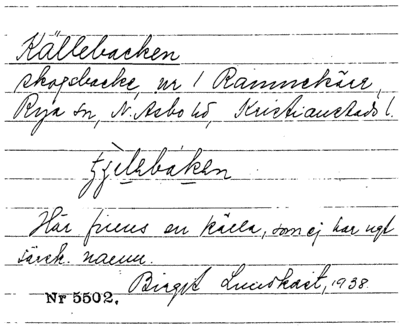 Källebacken
skogsbacke, nr 1 Rammekärr,
Rya sn, N. Åsbo hd, Kristianstads l.
Här finns en källa, som ej har ngt
särsk. namn.
Birgit Lundkvist, 1938.
Nr 5502.